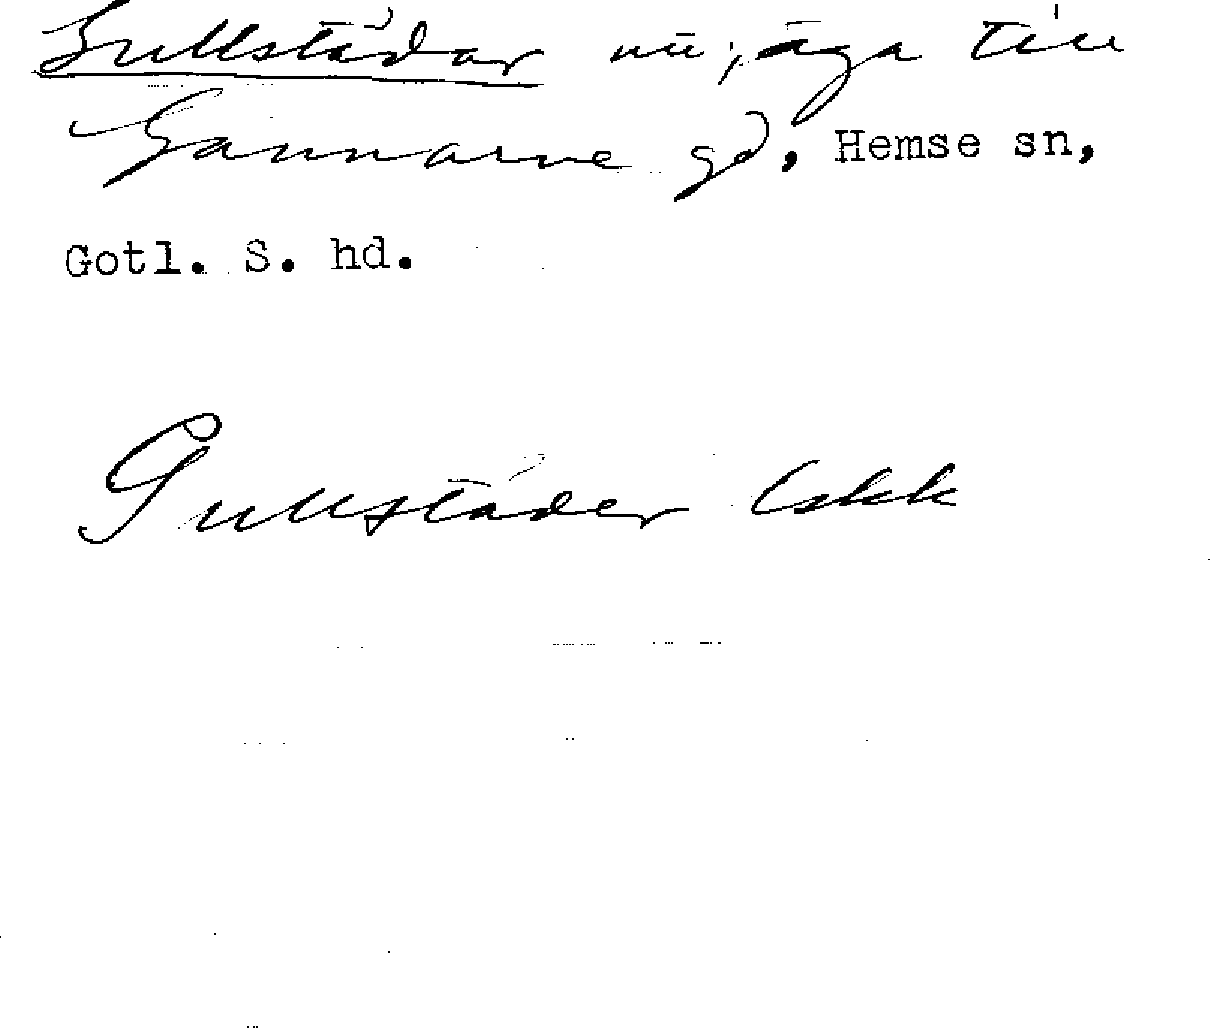 Gullstädar äga till
Gannarve gd, Hemse sn,
Gotl. S. hd.
Gullstäder lskk